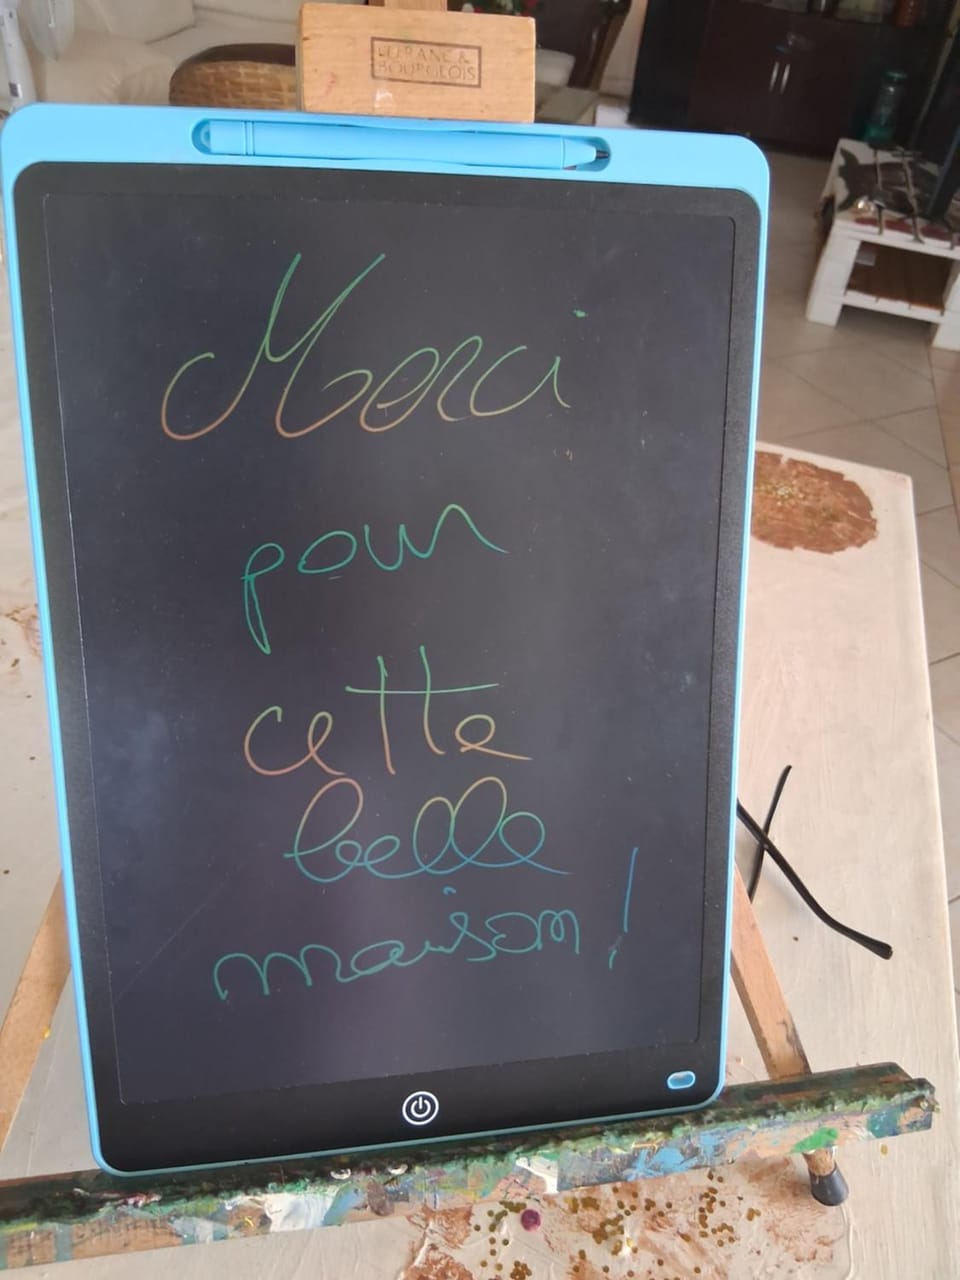 LEFRANC &
BOURGEOIS
Merci
pour
cette
belle
maison !